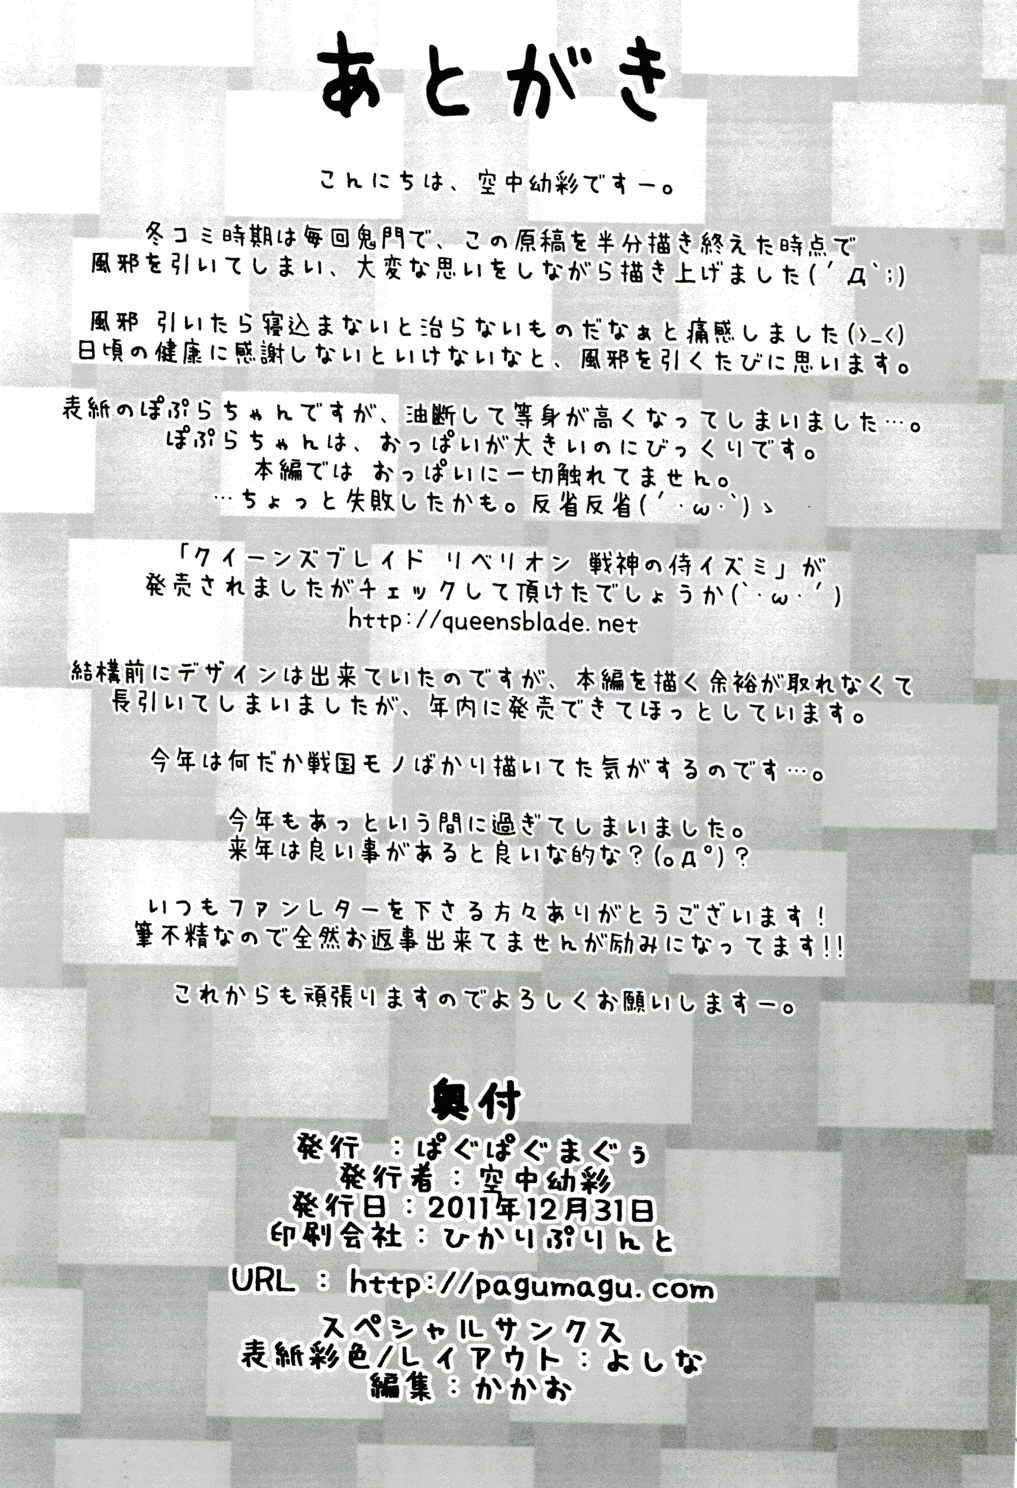 あとがき
こんにちは、空中幼彩ですー。
冬コミ時期は毎回鬼門で、この原稿を半分描き終えた時点で
風邪を引いてしまい、大変な思いをしながら描き上げました(´Д`;)
風邪 引いたら寝込まないと治らないものだなぁと痛感しました(>_<)
日頃の健康に感謝しないといけないなと、風邪を引くたびに思います。
表紙のぽぷらちゃんですが、油断して等身が高くなってしまいました…。
ぽぷらちゃんは、おっぱいが大きいのにびっくりです。
本編では おっぱいに一切触れてません。
…ちょっと失敗したかも。反省反省(´･ω･`)ゝ
「クイーンズブレイド リベリオン 戦神の侍イズミ」が
発売されましたがチェックして頂けたでしょうか(`･ω･´)
http://queensblade.net
結構前にデザインは出来ていたのですが、本編を描く余裕が取れなくて
長引いてしまいましたが、年内に発売できてほっとしています。
今年は何だか戦国モノばかり描いてた気がするのです…。
今年もあっという間に過ぎてしまいました。
来年は良い事があると良いな的な？(｡д°)？
いつもファンレターを下さる方々ありがとうございます！
筆不精なので全然お返事出来てませんが励みになってます!!
これからも頑張りますのでよろしくお願いしますー。
奥付
発行 ：ぱぐぱぐまぐぅ
発行者：空中幼彩
発行日：2011年12月31日
印刷会社：ひかりぷりんと
URL ： http://pagumagu.com
スペシャルサンクス
表紙彩色/レイアウト：よしな
編集：かかお